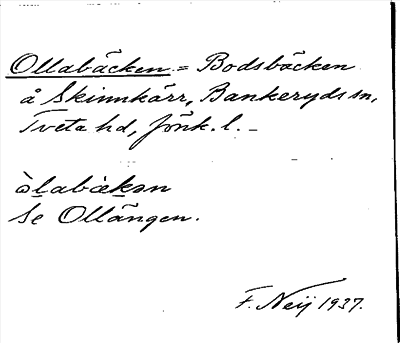 Ollabäcken = Bodsbäcken
å Skinnkärr, Bankeryds sn,
Tveta hd, Jönk. l. –
òlabὰkən
Se Ollängen.
F. Neij 1937.